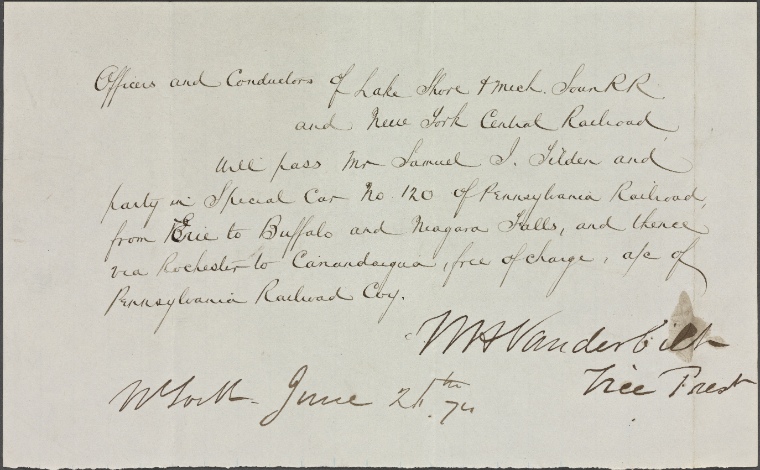 Officers and Conductors of Lake Shore & Mich. Soun RR
and New York Central Railroad
Will pass Mr Samuel J. Tilden and
party in Special Car No. 120 of Pennsylvania Railroad,
from Erie to Buffalo and Niagara Falls, and thence
via Rochester to Canandaigua, free of charge, a/c of
Pennsylvania Railroad Coy.
WH Vanderbilt
Vice Prest
N York June th 74